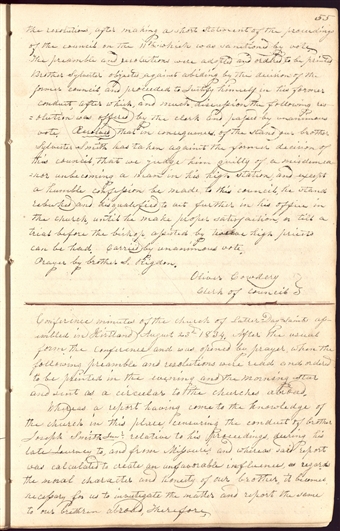 55
the resolution, after making a short statement of the proceedings
of the council on the 11th which was sanctioned by vote.
The preamble and resolutions were adopted and ordered to be printed
Brother Sylvester objected against abiding by the decision of the
former council and proceeded to justify himself in his former
conduct, after which, and much discussion the following res
olution was offered by the clerk and passed by unanimous
vote, Resolved that in consequence of the stand our brother
Sylvester Smith has taken against the former decision of
this council, that we judge him guilty of a misdemea
nor unbecoming a man in his high station, and except
a humble confession be made, to this council, he stand
rebuked and disqualified to act further in his office in
the church, until he make proper satisfaction, or till a
trial before the bishop assisted by high priests
can be had, Carried by unanimous vote.
Prayer by brother S. Rigdon.
Oliver Cowdery
Clerk of Council
Conference minutes of the church of Latter Day Saints as
sembled in Kirtland August 23rd 1834. After the usual
form the conference was opened by prayer, when the
following preamble and resolutions were read and ordered
to be printed in the evening and the morning star
and sent as a circular to the churches abroad.
Whereas a report having come to the knowledge of
the church in this place, censuring the conduct of brother
Joseph Smith Junr. relative to his proceedings during his
late journey to, and from Missouri, and whereas said report
was calculated to create an unfavorable influence, as regards
the moral character and honesty of our brother, it becomes
necessary for us to investigate the matter and report the same
to our brethren abroad, Therefore,